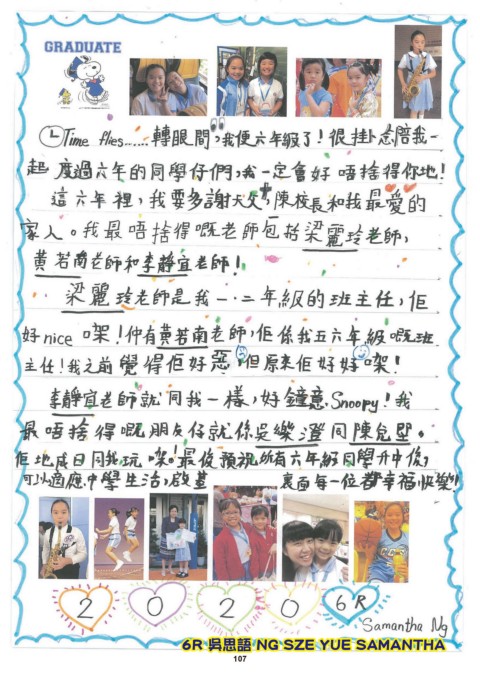 GRADUATE
Time flies......轉眼間,我便六年級了!很掛念陪我一
起度過六年的同學仔們,我一定會好唔捨得你地!
這六年裡,我要多謝天父,陳校長和我最愛的
家人。我最唔捨得嘅老師包括梁麗玲老師,
黃若南老師和李靜宜老師!
梁麗玲老師是我一.二年級的班主任,佢
好nice㗎!仲有黃若南老師,佢係我五六年級嘅班
主任!我之前覺得佢好惡,但原來佢好好㗎!
李靜宜老師就同我一樣,好鐘意Snoopy!我
最唔捨得嘅朋友仔就係吳樂澄同陳
佢地成日同我玩㗎!最後預祝所有六年級同學升中後,
可以適應中學生活,
裏面每一位都幸福快樂!
2 0 2 0 6R
Samantha Ng
6R 吳思語 NG SZE YUE SAMANTHA
107